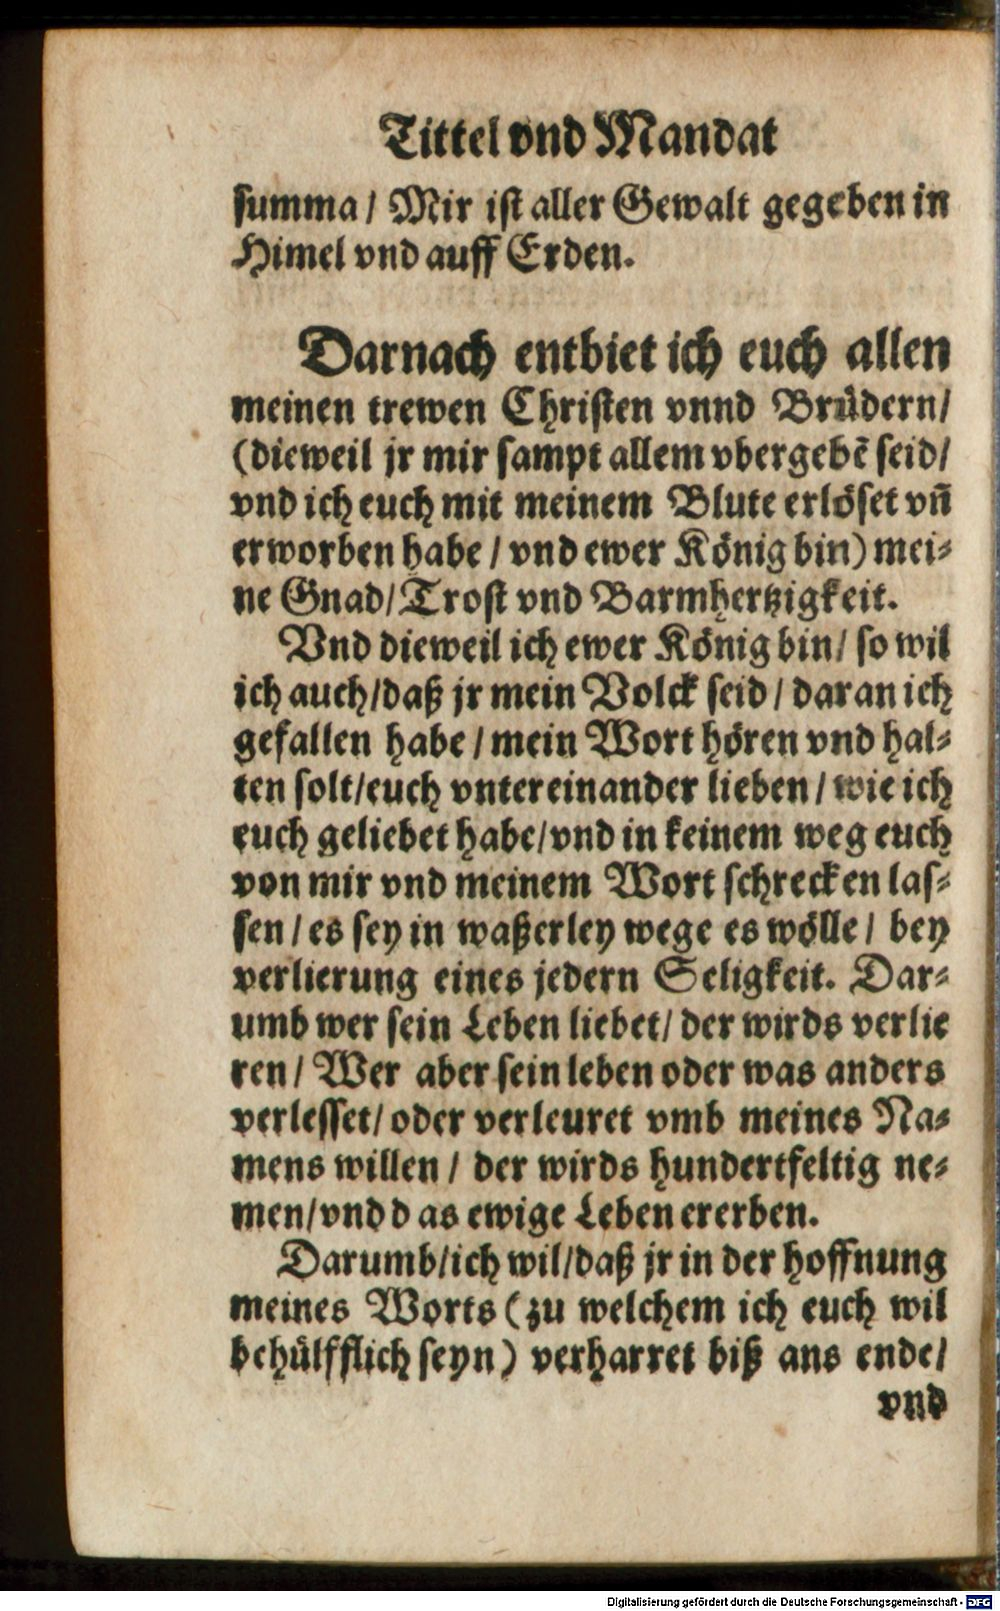 Tittel vnd Mandat
summa / Mir ist aller Gewalt gegeben in
Himel vnd auff Erden.
Darnach entbiet ich euch allen
meinen trewen Christen vnnd Brüdern/
(dieweil jr mir sampt allem vbergebẽ seid/
vnd ich euch mit meinem Blute erlöset vñ
erworben habe / vnd ewer König bin) mei-
ne Gnad/ Trost vnd Barmhertzigkeit.
Vnd dieweil ich ewer König bin/ so wil
ich auch/daß jr mein Volck seid / daran ich
gefallen habe / mein Wort hören vnd hal-
ten solt/euch vntereinander lieben / wie ich
euch geliebet habe/vnd in keinem weg euch
von mir vnd meinem Wort schrecken las-
sen / es sey in waßerley wege es wölle / bey
verlierung eines jedern Seligkeit. Dar-
umb wer sein Leben liebet/ der wirds verlie
ren / Wer aber sein leben oder was anders
verlesset/ oder verleuret vmb meines Na-
mens willen / der wirds hundertfeltig ne-
men/vnd das ewige Leben ererben.
Darumb/ich wil/daß jr in der hoffnung
meines Worts (zu welchem ich euch wil
behülfflich seyn) verharret biß ans ende/
vnd
Digitalisierung gefördert durch die Deutsche Forschungsgemeinschaft - DFG